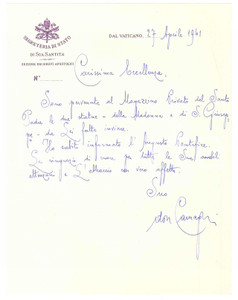 SEGRETERIA DI STATO
DI SUA SANTITÀ
N°
DAL VATICANO, 27 Aprile 1961
Carissima Eccellenza,
Sono pervenute al Magazzeno Privato del Santo
Padre le due statue - della Madonna e di S. Giusep-
pe - da Lei fatte inviare.
Ho subito informato l'Augusto Pontefice.
La ringrazio di nuovo per tutte le Sue nobili
attenzioni e L'abbraccio con vivo affetto.
Suo
don